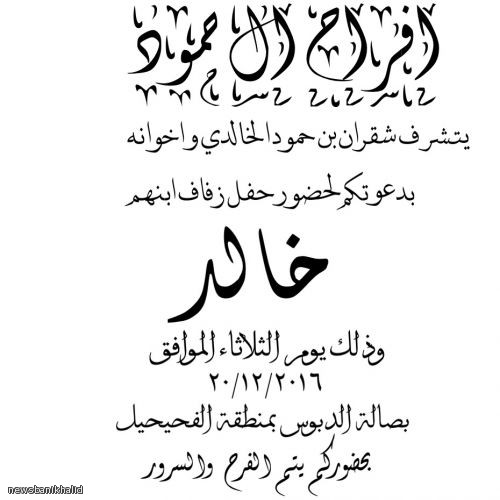 افراح ال حمود
يتشرف شقران بن حمود الخالدي واخوانه
بدعوتكم لحضور حفل زفاف ابنهم
خالد
وذلك يوم الثلاثاء الموافق
٢٠/١٢/٢٠١٦
بصالة الدبوس بمنطقة الفحيحيل
بحضوركم يتم الفرح والسرور
newsbanikhalid